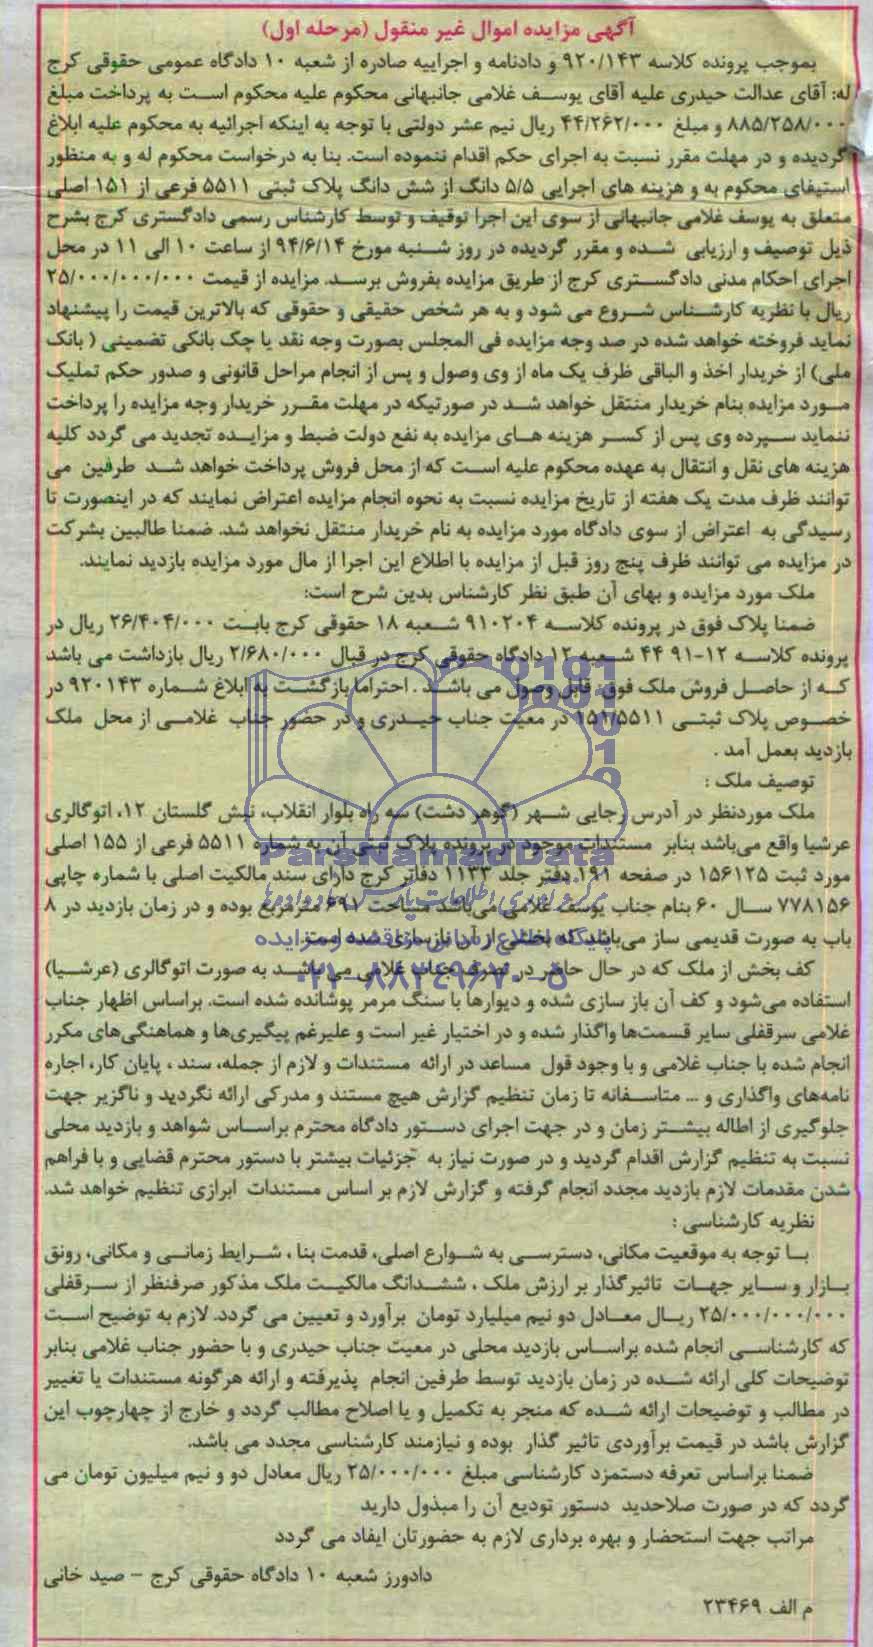 آگهی مزایده اموال غیر منقول (مرحله اول)
بموجب پرونده کلاسه ۹۲۰/۱۴۳ و دادنامه و اجراییه صادره از شعبه ۱۰ دادگاه عمومی حقوقی کرج
له: آقای عدالت حیدری علیه آقای یوسف غلامی جانبهانی محکوم علیه محکوم است به پرداخت مبلغ
۸۸۵/۲۵۸/۰۰۰ و مبلغ ۴۴/۲۶۲/۰۰۰ ریال نیم عشر دولتی با توجه به اینکه اجرائیه به محکوم علیه ابلاغ
گردیده و در مهلت مقرر نسبت به اجرای حکم اقدام ننموده است. بنا به درخواست محکوم له و به منظور
استیفای محکوم به و هزینه های اجرایی ۵/۵ دانگ از شش دانگ پلاک ثبتی ۵۵۱۱ فرعی از ۱۵۱ اصلی
متعلق به یوسف غلامی جانبهانی از سوی این اجرا توقیف و توسط کارشناس رسمی دادگستری کرج بشرح
ذیل توصیف و ارزیابی شده و مقرر گردیده در روز شنبه مورخ ۹۴/۶/۱۴ از ساعت ۱۰ الی ۱۱ در محل
اجرای احکام مدنی دادگستری کرج از طریق مزایده بفروش برسد. مزایده از قیمت ۲۵/۰۰۰/۰۰۰/۰۰۰
ریال با نظریه کارشناس شروع می شود و به هر شخص حقیقی و حقوقی که بالاترین قیمت را پیشنهاد
نماید فروخته خواهد شده در صد وجه مزایده فی المجلس بصورت وجه نقد یا چک بانکی تضمینی ( بانک
ملی) از خریدار اخذ و الباقی ظرف یک ماه از وی وصول و پس از انجام مراحل قانونی و صدور حکم تملیک
مورد مزایده بنام خریدار منتقل خواهد شد در صورتیکه در مهلت مقرر خریدار وجه مزایده را پرداخت
ننماید سپرده وی پس از کسر هزینه های مزایده به نفع دولت ضبط و مزایده تجدید می گردد کلیه
هزینه های نقل و انتقال به عهده محکوم علیه است که از محل فروش پرداخت خواهد شد طرفین می
توانند ظرف مدت یک هفته از تاریخ مزایده نسبت به نحوه انجام مزایده اعتراض نمایند که در اینصورت تا
رسیدگی به اعتراض از سوی دادگاه مورد مزایده به نام خریدار منتقل نخواهد شد. ضمنا طالبین بشرکت
در مزایده می توانند ظرف پنج روز قبل از مزایده با اطلاع این اجرا از مال مورد مزایده بازدید نمایند.
ملک مورد مزایده و بهای آن طبق نظر کارشناس بدین شرح است:
ضمنا پلاک فوق در پرونده کلاسه ۹۱۰۲۰۴ شعبه ۱۸ حقوقی کرج بابت ۲۶/۴۰۴/۰۰۰ ریال در
پرونده کلاسه ۱۲-۹۱ ۴۴ شعبه ۱۲ دادگاه حقوقی کرج در قبال ۲/۶۸۰/۰۰۰ ریال بازداشت می باشد
که از حاصل فروش ملک فوق قابل وصول می باشد . احتراما بازگشت به ابلاغ شماره ۹۲۰۱۴۳ در
خصوص پلاک ثبتی ۱۵۱/۵۵۱۱ در معیت جناب حیدری و در حضور جناب غلامی از محل ملک
بازدید بعمل آمد .
توصیف ملک :
ملک موردنظر در آدرس رجایی شهر (گوهر دشت) سه راه بلوار انقلاب، نبش گلستان ۱۲، اتوگالری
عرشیا واقع می‌باشد بنابر مستندات موجود در پرونده پلاک ثبتی آن به شماره ۵۵۱۱ فرعی از ۱۵۵ اصلی
مورد ثبت ۱۵۶۱۲۵ در صفحه ۱۹۱ دفتر جلد ۱۱۳۳ دفاتر کرج دارای سند مالکیت اصلی با شماره چاپی
۷۷۸۱۵۶ سال ۶۰ بنام جناب یوسف غلامی می‌باشد مساحت ۶۹۱ مترمربع بوده و در زمان بازدید در ۸
باب به صورت قدیمی ساز می‌باشد که بخشی از آن بازسازی شده است.
کف بخش از ملک که در حال حاضر در تصرف جناب غلامی می‌باشد به صورت اتوگالری (عرشیا)
استفاده می‌شود و کف آن باز سازی شده و دیوارها با سنگ مرمر پوشانده شده است. براساس اظهار جناب
غلامی سرقفلی سایر قسمت‌ها واگذار شده و در اختیار غیر است و علیرغم پیگیری‌ها و هماهنگی‌های مکرر
انجام شده با جناب غلامی و با وجود قول مساعد در ارائه مستندات و لازم از جمله، سند ، پایان کار، اجاره
نامه‌های واگذاری و ... متاسفانه تا زمان تنظیم گزارش هیچ مستند و مدرکی ارائه نگردید و ناگزیر جهت
جلوگیری از اطاله بیشتر زمان و در جهت اجرای دستور دادگاه محترم براساس شواهد و بازدید محلی
نسبت به تنظیم گزارش اقدام گردید و در صورت نیاز به جزئیات بیشتر با دستور محترم قضایی و با فراهم
شدن مقدمات لازم بازدید مجدد انجام گرفته و گزارش لازم بر اساس مستندات ابرازی تنظیم خواهد شد.
نظریه کارشناسی :
با توجه به موقعیت مکانی، دسترسی به شوارع اصلی، قدمت بنا ، شرایط زمانی و مکانی، رونق
بازار و سایر جهات تاثیرگذار بر ارزش ملک ، ششدانگ مالکیت ملک مذکور صرفنظر از سرقفلی
۲۵/۰۰۰/۰۰۰/۰۰۰ ریال معادل دو نیم میلیارد تومان برآورد و تعیین می گردد. لازم به توضیح است
که کارشناسی انجام شده براساس بازدید محلی در معیت جناب حیدری و با حضور جناب غلامی بنابر
توضیحات کلی ارائه شده در زمان بازدید توسط طرفین انجام پذیرفته و ارائه هرگونه مستندات یا تغییر
در مطالب و توضیحات ارائه شده که منجر به تکمیل و یا اصلاح مطالب گردد و خارج از چهارچوب این
گزارش باشد در قیمت برآوردی تاثیر گذار بوده و نیازمند کارشناسی مجدد می باشد.
ضمنا براساس تعرفه دستمزد کارشناسی مبلغ ۲۵/۰۰۰/۰۰۰ ریال معادل دو و نیم میلیون تومان می
گردد که در صورت صلاحدید دستور تودیع آن را مبذول دارید
مراتب جهت استحضار و بهره برداری لازم به حضورتان ایفاد می گردد
دادورز شعبه ۱۰ دادگاه حقوقی کرج - صید خانی
م الف ۲۳۴۶۹
ParsNamadData
پایگاه اطلاع رسانی مناقصه و مزایده
۰۲۱-۸۸۳۴۹۶۷۰-۵